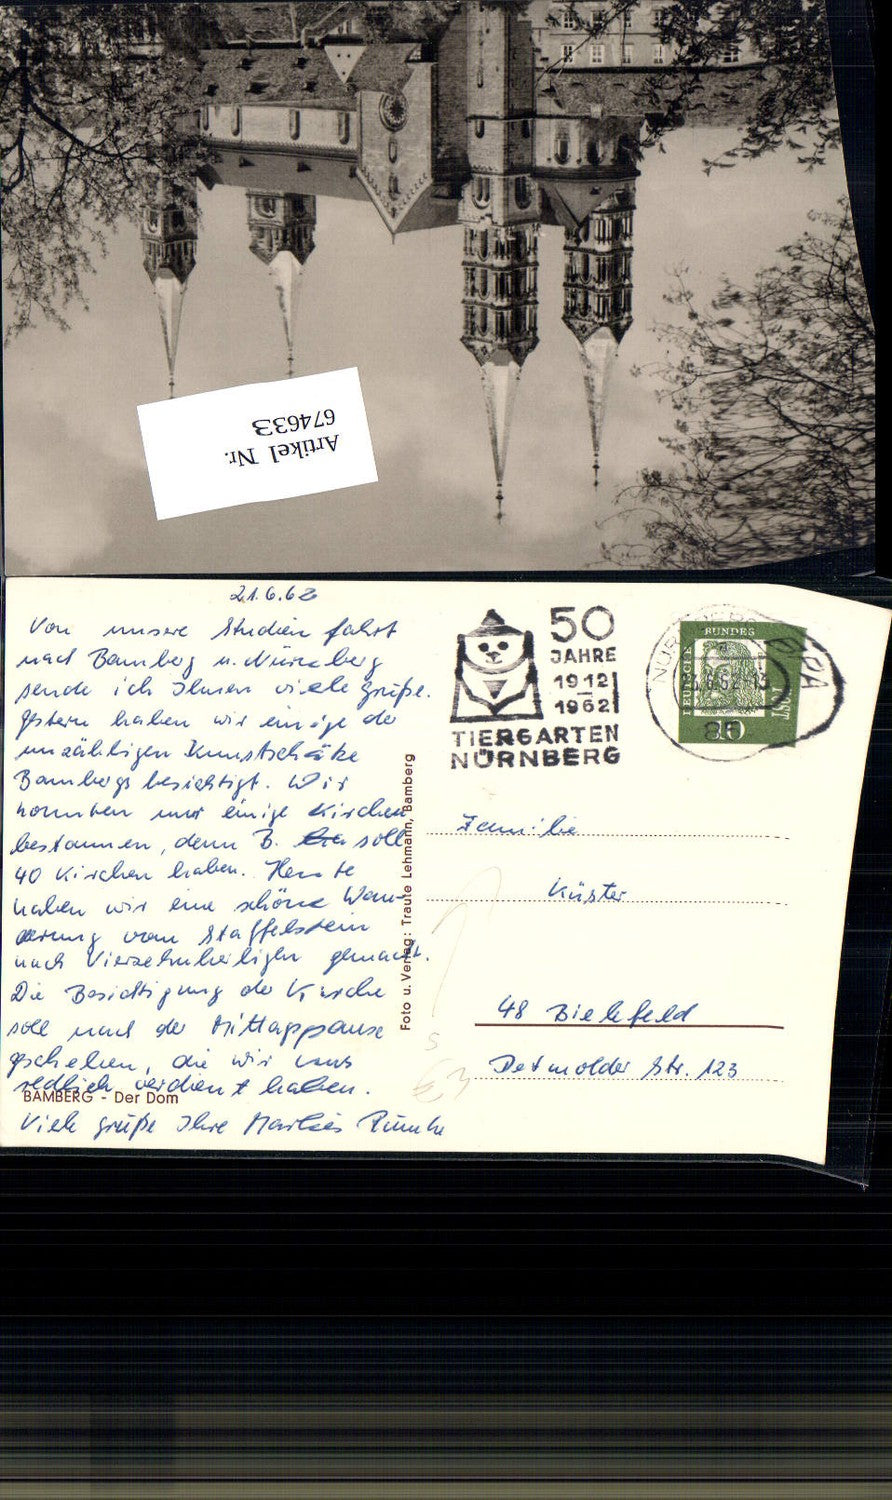 Artikel Nr.
674633
21.6.62
Von unsere Studienfahrt
nach Bamberg u. Nürnberg
sende ich Ihnen viele Grüße.
Gestern haben wir einige der
unzähligen Kunstschätze
Bambergs besichtigt. Wir
konnten nur einige Kirchen
bestaunen, denn B. soll
40 Kirchen haben. Heute
haben wir eine schöne Wan-
derung vom Staffelstein
nach Vierzehnheiligen gemacht.
Die Besichtigung der Kirche
soll nach der Mittagspause
geschehen, die wir uns
redlich verdient haben.
Viele Grüße Ihre Marlies
BAMBERG - Der Dom
Foto u. Verlag: Traute Lehmann, Bamberg
50
JAHRE
1912
1962
TIERGARTEN
NÜRNBERG
NÜRNBERG
.6.62-13
DEUTSCHE
BUNDES
POST
10
Familie
Küster
48 Bielefeld
Detmolder Str. 123